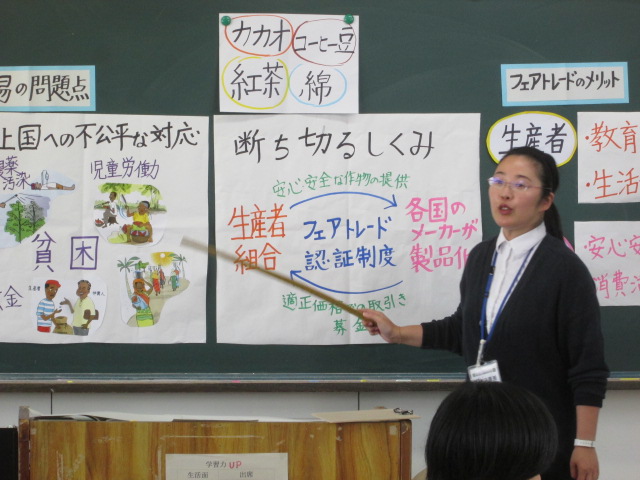 カカオ
コーヒー豆
紅茶
綿
易の問題点
上国への不公平な対応
汚染
児童労働
貧困
断ち切るしくみ
安心安全な作物の提供
生産者
組合
フェアトレード
認証制度
各国の
メーカーが
製品化
適正価格での取引き
募金
フェアトレードのメリット
生産者
・教育
・生活
・安心安
消費
学習力UP
生活面